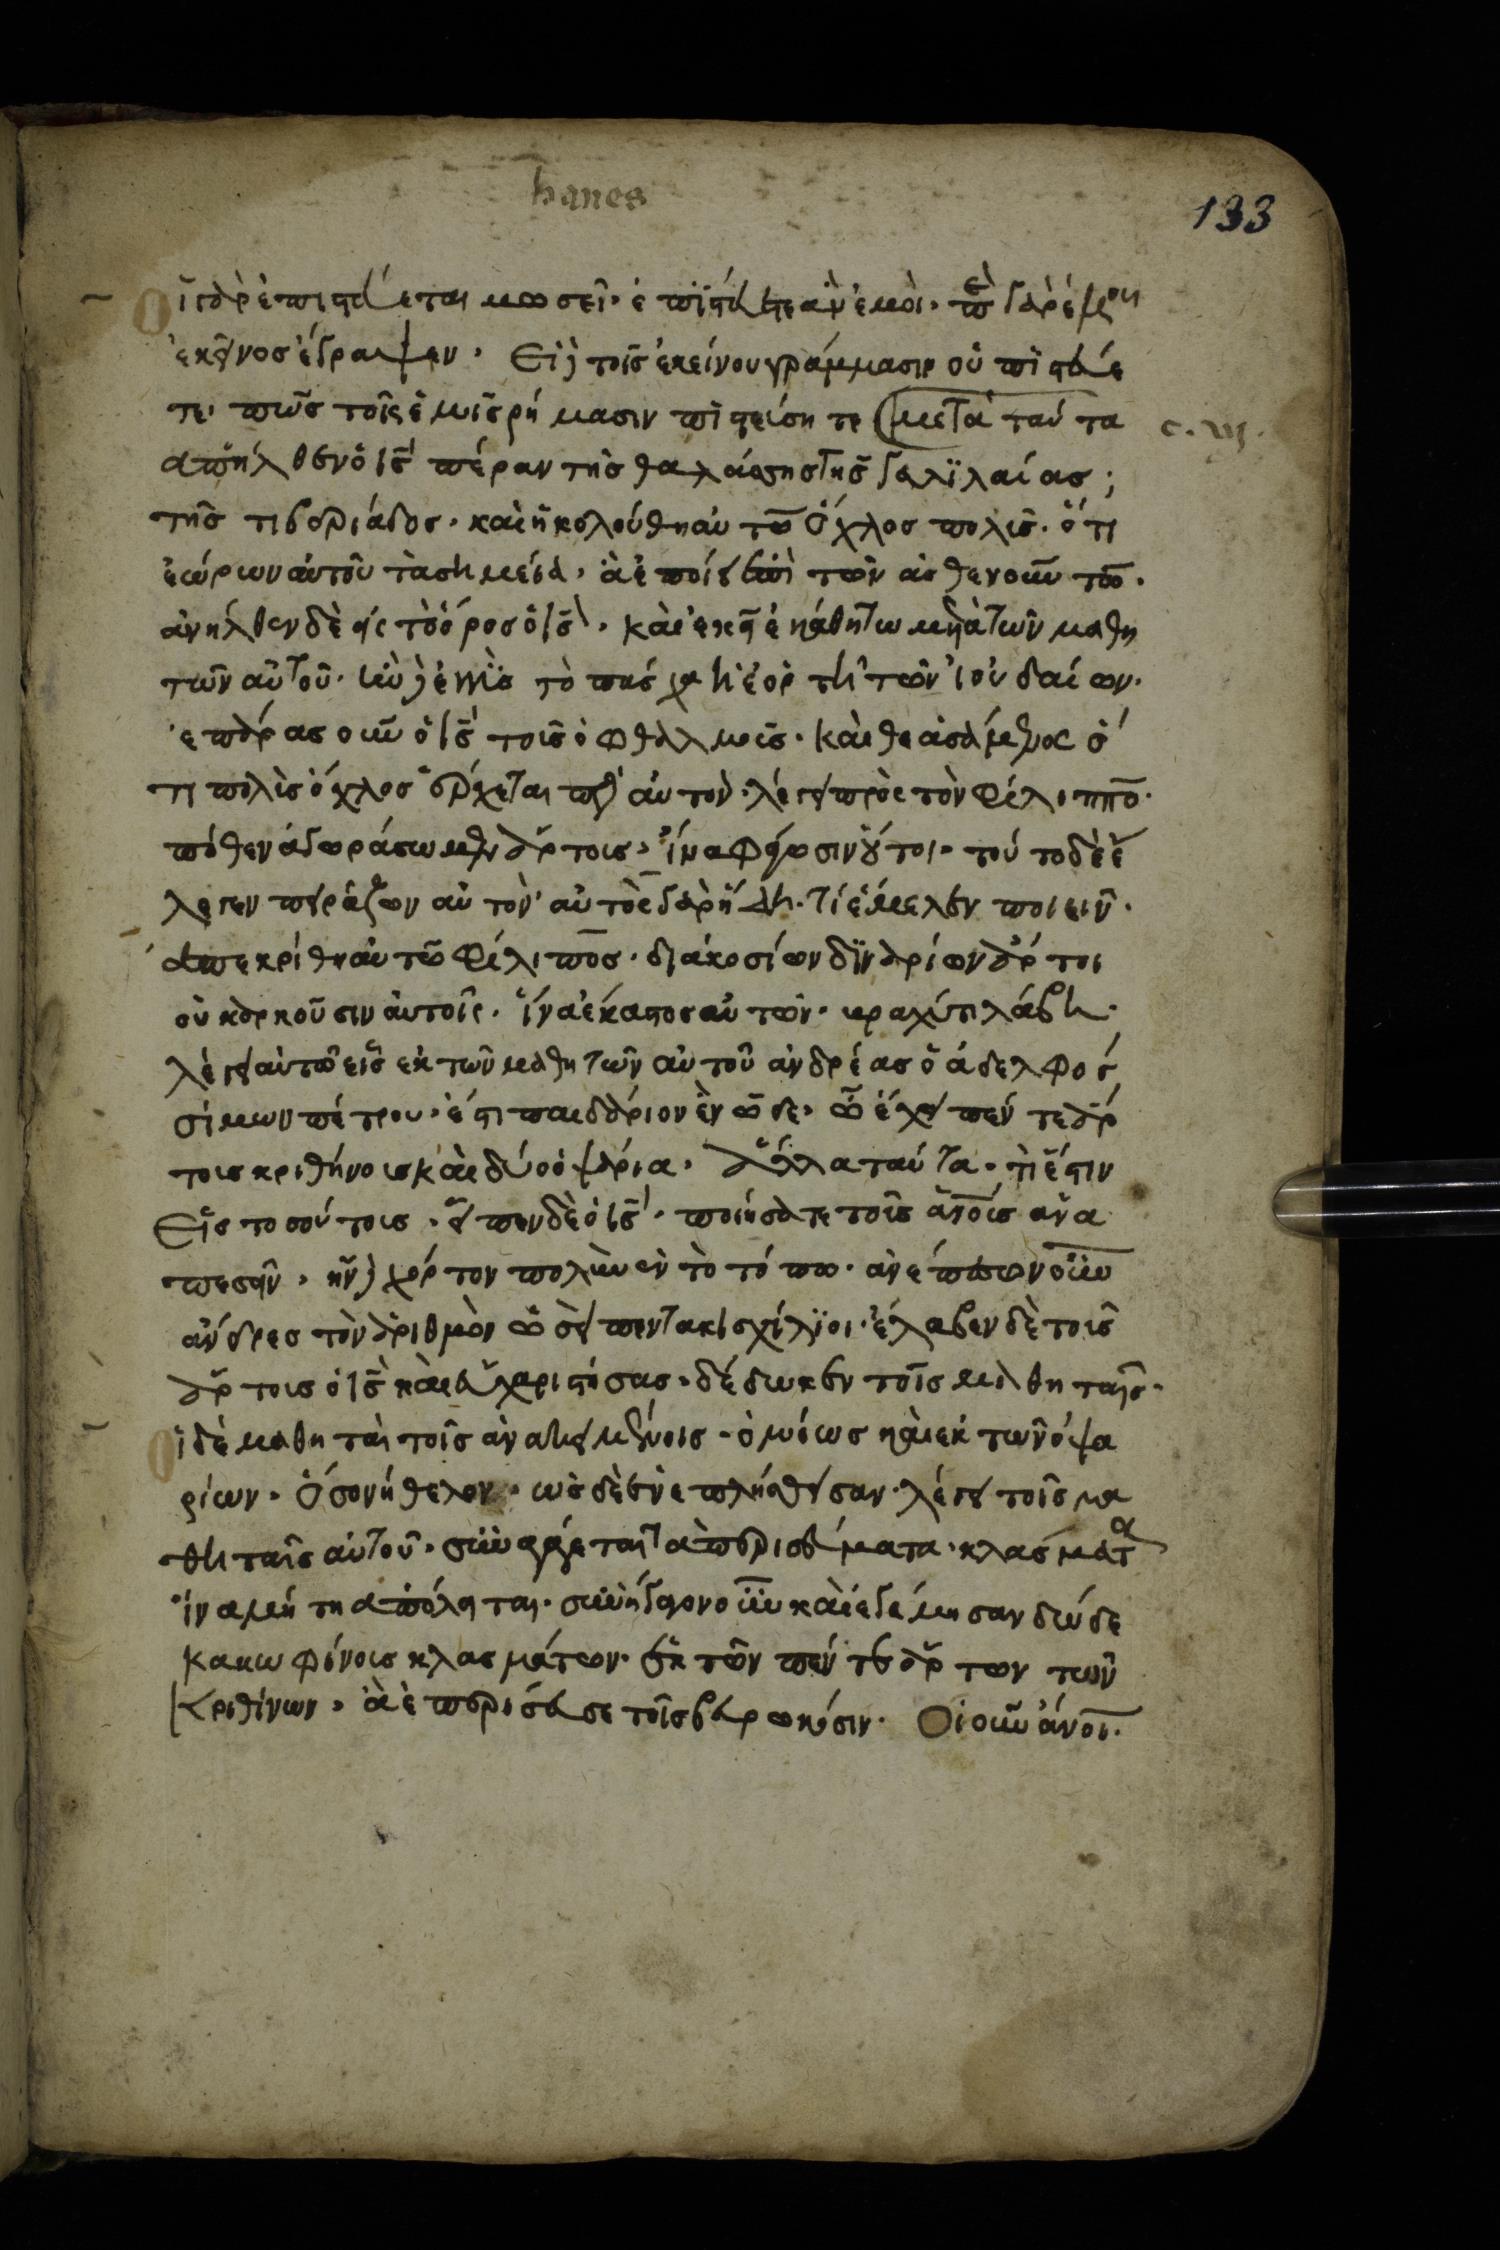 hanes
133
Οἰ γὰρ ἐπιστεύεται μωσεῖ· ἐπϊστεύετε ἂν ἐμοὶ· περὶ γὰρ ἐμοῦ
ἐκεῖνοσ ἔγραψεν· Εἰ δὲ τοῖς ἐκείνου γράμμασιν οὐ πιστεύε
τε· πῶς τοῖς ἐμοῖς ρήμασιν πιστεύσητε μετὰ ταύτα
c. vj.
ἀπῆλθεν ὁ ις πέραν τῆς θαλάσσης τῆς Γαλϊλαίας;
τῆς τιβεριάδος· καὶ ἠκολούθη αὐτῶ ὄχλος πολίς· ὅτι
ἑώρων αὐτοῦ τὰ σημεία· ἃ ἐποίει ἐπὶ τῶν ἀσθενούντων·
ἀνῆλθεν δὲ εἰς τὸ ὄρος ὁ ις· καὶ ἐκεῖ ἐκάθητω μετὰ τῶν μαθη
τῶν αὐτοῦ· ἦν δὲ ἐγγῒς τὸ πάσχα ἡ ἑορτὴ τῶν ἰουδαίων·
ἐπάρας οὖν ὁ ις τοῖς ὀφθαλμοῖς· καὶ θεασάμενος ὅ
τι πολὶς ὄχλος ἔρχεται πρὸς αὐτὸν· λέγει πρὸς τὸν φίλιππον·
πόθεν ἀγωράσωμεν ἄρτοις· ἵνα φάγωσιν οὗτοι· τούτο δὲ ἔ
λεγεν πειράζων αὐτὸν· αὐτὸς γὰρ ἤδη· τί ἔμελεν ποιεῖν·
ἀπεκρίθη αὐτῶ φίλιπος· διακοσίων δϊναρίων ἄρτοι
οὐκ ἀρκοῦσιν αὐτοῖς· ἵνα ἕκαστος αὐτῶν· βραχύ τι λάβη·
λέγει αὐτῶ εἷς ἐκ τῶν μαθητῶν αὐτοῦ ἀνδρέας ὁ ἀδελφος
σίμων πέτρου· ἔστι παιδάριον ἓν ὧδε· ὃ ἔχει πέντε ἄρ
τοις κριθήνοις καὶ δύο ὀψάρια· ἀλλὰ ταύτα· τὶ ἔστιν
Εἰς τοσούτοις· εἶπεν δὲ ὁ ις· ποιήσατε τοῖς ἀνοις ἀνα
πεσεῖν· ἦν δὲ χόρτον πολὺν ἐν τὸ τόπω· ἀνέπεσων οὖν
ἄνδρες τὸν ἀριθμὸν ὡσεὶ πεντακισχίλϊοι· ἔλαβεν δὲ τοῖς
ἄρτοις ὁ ις καὶ εὐχαριστήσας· δέδωκεν τοῖς μαθηταῖς·
Οἱ δὲ μαθηταὶ τοῖς ἀνακειμένοις· ὁμοίως καὶ ἐκ τῶν ὀψα
ρίων· ὅσον ἤθελον· ὡς δὲ ἐνεπλήσθησαν· λέγει τοῖς μα
θηταῖς αὐτοῦ· συναγάγεται τὰ περισεύματα· κλάσματα
ἵνα μή τη ἀπόληται· συνήγαγον οὖν καὶ ἐγέμησαν δώδε
κα κωφίνοις κλασμάτων· ἐκ τῶν πέντε ἄρτων τῶν
κριθίνων· ἃ ἐπερισευσε τοῖς βεβρωκόσιν· Οἱ οὖν ἄνοι·